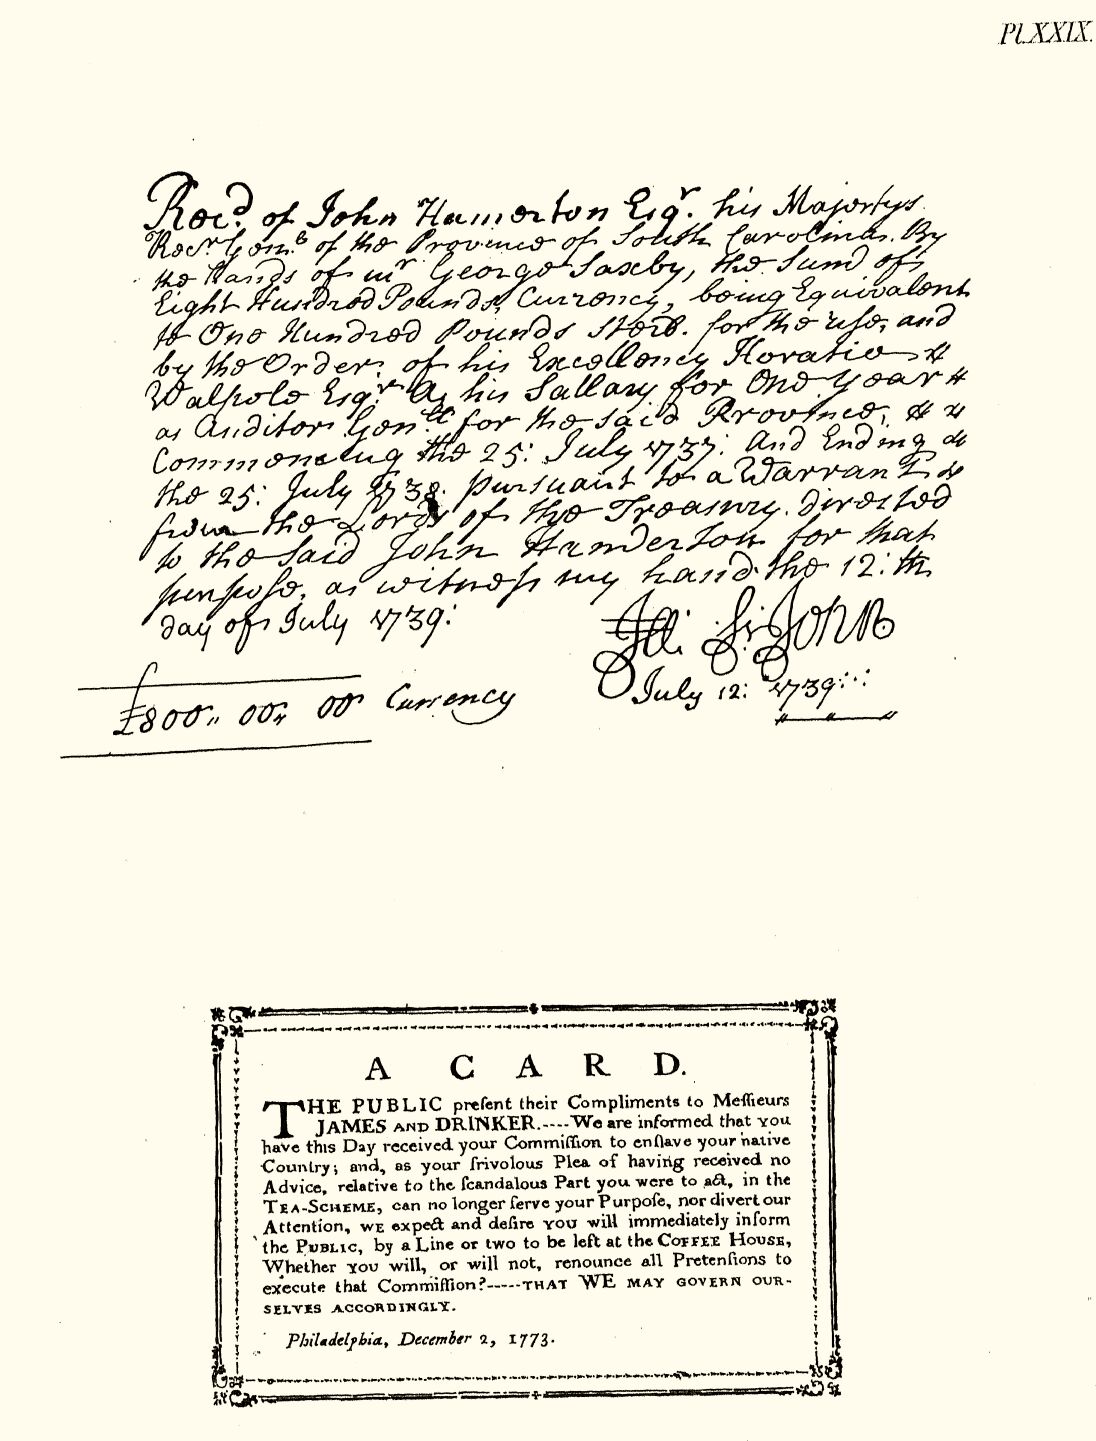 Pl.XXIX.
Recd. of John Hamerton Esqr. his Majestys
Recr. Genl. of the Province of South Carolina. By
the Hands of mr George Saxby, the Sum of
Eight Hundred Pounds, Currency, being Equivalent
to One Hundred Pounds Sterl. for the use, and
by the Order, of his Excellency Horatio
Walpole Esqr. As his Sallary for One year
as Auditor Genll. for the said Province,
Commencing the 25: July 1737: And Ending
the 25: July 1738. pursuant to a Warrant
from the Lords of the Treasury. directed
to the said John Hamderton for that
purpose, as witness my hand. the 12:th
day of July 1739:
St. John
July 12: 1739:
£800,, 00,, 00 Currency
A CARD.
THE PUBLIC preſent their Compliments to Meſſieurs
JAMES AND DRINKER.----We are informed that you
have this Day received your Commiſſion to enſlave your native
Country; and, as your frivolous Plea of having received no
Advice, relative to the ſcandalous Part you were to act, in the
TEA-SCHEME, can no longer ſerve your Purpoſe, nor divert our
Attention, WE expect and deſire YOU will immediately inform
the PUBLIC, by a Line or two to be left at the COFFEE HOUSE,
Whether YOU will, or will not, renounce all Pretenſions to
execute that Commiſſion?-----THAT WE MAY GOVERN OUR-
SELVES ACCORDINGLY.
Philadelphia, December 2, 1773.